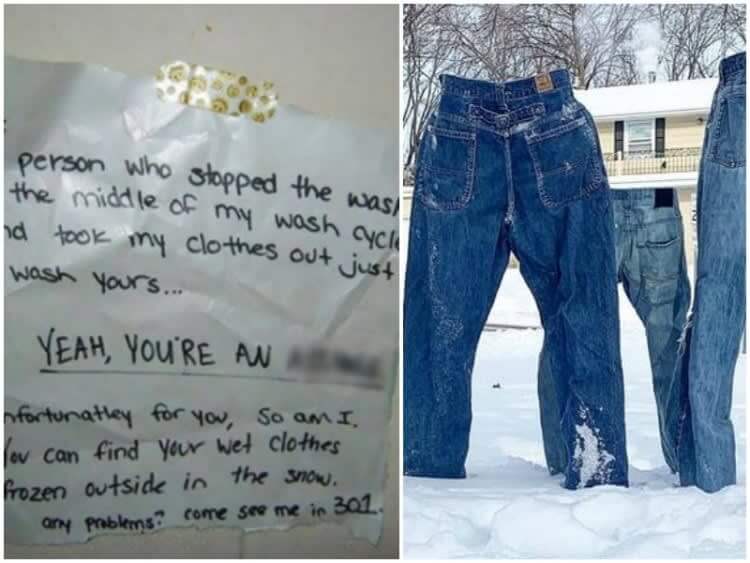 person who stopped the wash
the middle of my wash cycle
nd took my clothes out just
wash yours...
YEAH, YOU'RE AN
nfortunatley for you, So am I.
You can find your wet clothes
frozen outside in the snow.
any problems? come see me in 301.